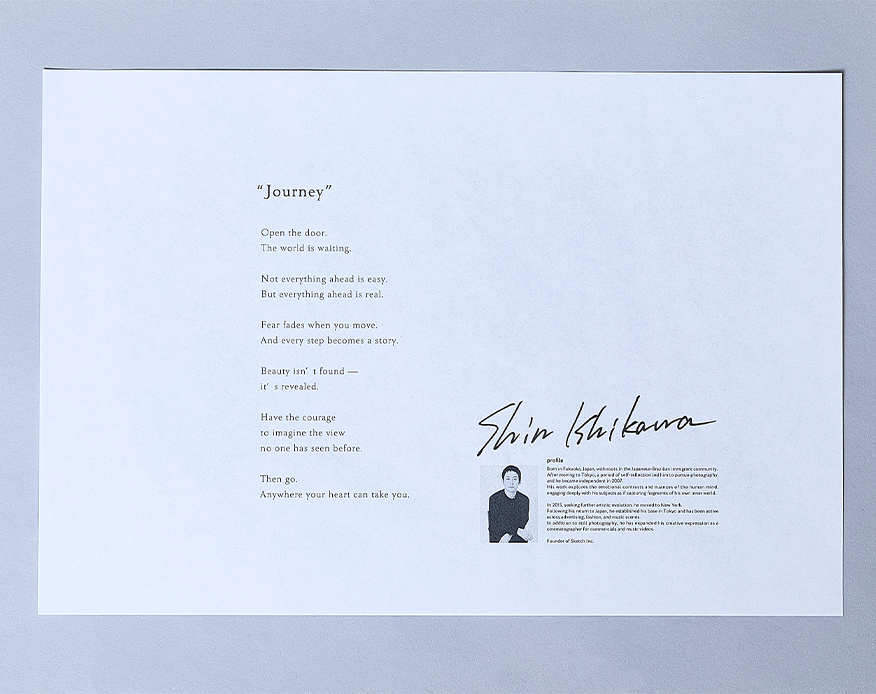 “Journey”
Open the door.
The world is waiting.
Not everything ahead is easy.
But everything ahead is real.
Fear fades when you move.
And every step becomes a story.
Beauty isn’ t found —
it’ s revealed.
Have the courage
to imagine the view
no one has seen before.
Then go.
Anywhere your heart can take you.
Shin Ishikawa
profile
Born in Fukuoka, Japan, with roots in the Japanese-Brazilian immigrant community.
After moving to Tokyo, a period of self-reflection led him to pursue photography,
and he became independent in 2007.
His work explores the emotional contrasts and nuances of the human mind,
engaging deeply with his subjects as if capturing fragments of his own inner world.
In 2015, seeking further artistic evolution, he moved to New York.
Following his return to Japan, he established his base in Tokyo and has been active
across advertising, fashion, and music scenes.
In addition to still photography, he has expanded his creative expression as a
cinematographer for commercials and music videos.
Founder of Sketch Inc.